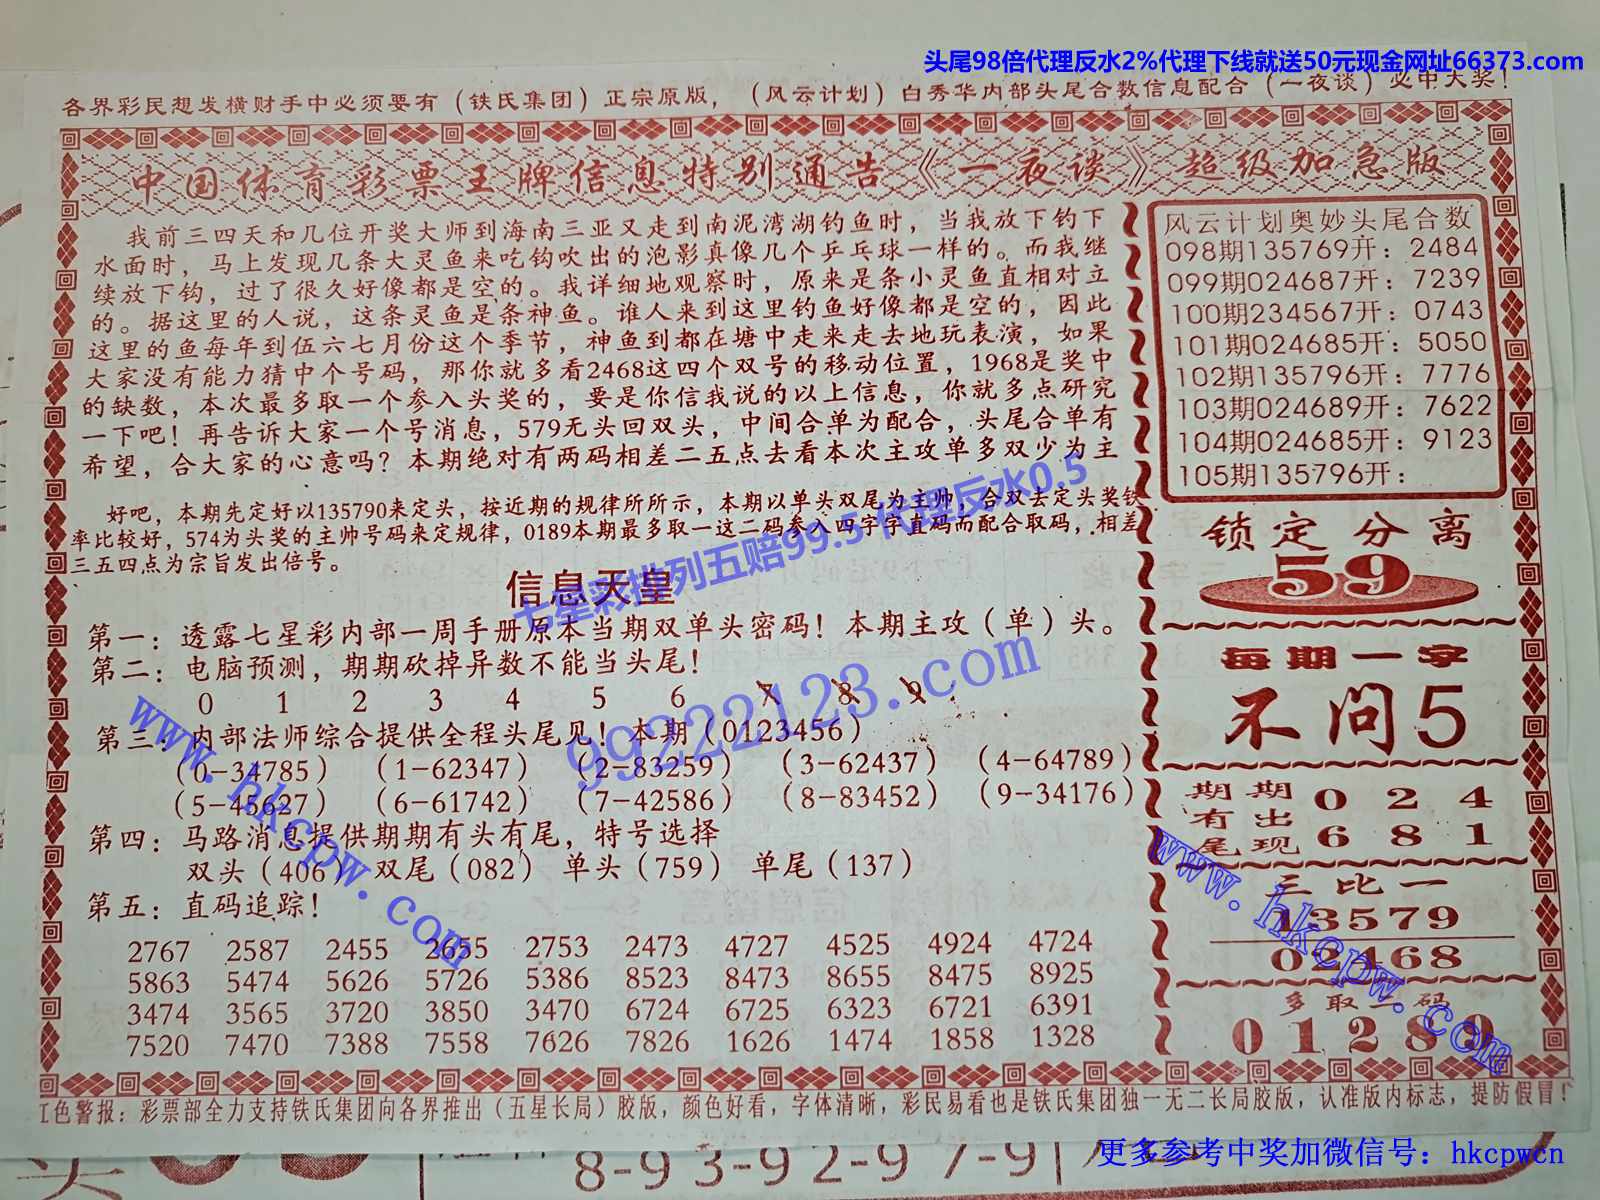 头尾98倍代理反水2%代理下线就送50元现金网址66373.com
各界彩民想发横财手中必须要有（铁氏集团）正宗原版，（风云计划）白秀华内部头尾合数信息配合（一夜谈）必中大奖！
中国体育彩票王牌信息特别通告《一夜谈》超级加急版
我前三四天和几位开奖大师到海南三亚又走到南泥湾湖钓鱼时，当我放下钓下
水面时，马上发现几条大灵鱼来吃钩吹出的泡影真像几个乒乓球一样的。而我继
续放下钩，过了很久好像都是空的。我详细地观察时，原来是条小灵鱼直相对立
的。据这里的人说，这条灵鱼是条神鱼。谁人来到这里钓鱼好像都是空的，因此
这里的鱼每年到伍六七月份这个季节，神鱼到都在塘中走来走去地玩表演，如果
大家没有能力猜中个号码，那你就多看2468这四个双号的移动位置，1968是奖中
的缺数，本次最多取一个参入头奖的，要是你信我说的以上信息，你就多点研究
一下吧！再告诉大家一个号消息，579无头回双头，中间合单为配合，头尾合单有
希望，合大家的心意吗？本期绝对有两码相差二五点去看本次主攻单多双少为主
好吧，本期先定好以135790来定头，按近期的规律所所示，本期以单头双尾为主帅，合双去定头奖铁
率比较好，574为头奖的主帅号码来定规律，0189本期最多取一这二码参入四字字直码而配合取码，相差
三五四点为宗旨发出倍号。
信息天皇
第一：透露七星彩内部一周手册原本当期双单头密码！本期主攻（单）头。
第二：电脑预测，期期砍掉异数不能当头尾！
0 1 2 3 4 5 6 7 8 9
第三：内部法师综合提供全程头尾见！本期（0123456）
（0-34785）（1-62347）（2-83259）（3-62437）（4-64789）
（5-45627）（6-61742）（7-42586）（8-83452）（9-34176）
第四：马路消息提供期期有头有尾，特号选择
双头（406）双尾（082）单头（759）单尾（137）
第五：直码追踪！
2767 2587 2455 2655 2753 2473 4727 4525 4924 4724
5863 5474 5626 5726 5386 8523 8473 8655 8475 8925
3474 3565 3720 3850 3470 6724 6725 6323 6721 6391
7520 7470 7388 7558 7626 7826 1626 1474 1858 1328
风云计划奥妙头尾合数
098期135769开：2484
099期024687开：7239
100期234567开：0743
101期024685开：5050
102期135796开：7776
103期024689开：7622
104期024685开：9123
105期135796开：
锁定分离
59
每期一字
不问5
期期 0 2 4
有出
尾现 6 8 1
三比一
13579
02468
多取二码
01289
红色警报：彩票部全力支持铁氏集团向各界推出（五星长局）胶版，颜色好看，字体清晰，彩民易看也是铁氏集团独一无二长局胶版，认准版内标志，提防假冒！
七星彩排列五赔99.5代理反水0.5
99222123.com
www.hkcpw.com
www.hkcpw.com
8-93-92-97-9
更多参考中奖加微信号：hkcpwcn